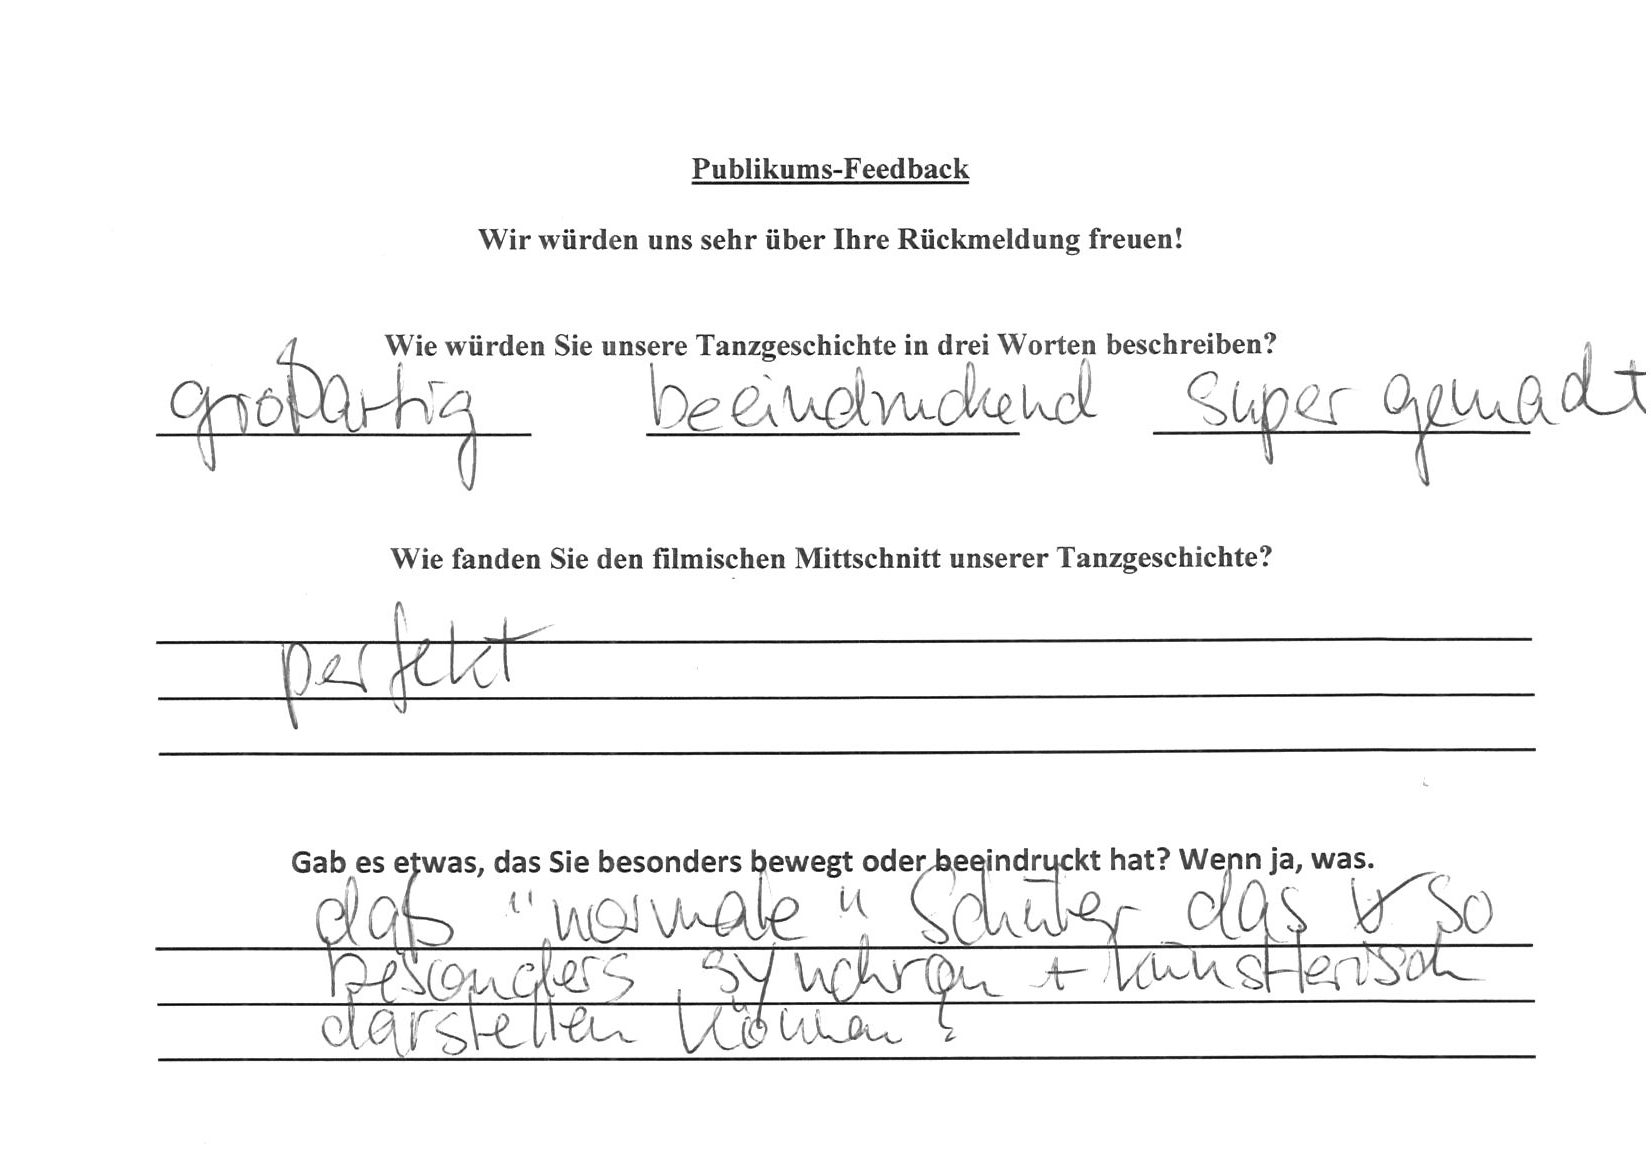 Publikums-Feedback
Wir würden uns sehr über Ihre Rückmeldung freuen!
Wie würden Sie unsere Tanzgeschichte in drei Worten beschreiben?
großartig beeindruckend super gemacht
Wie fanden Sie den filmischen Mittschnitt unserer Tanzgeschichte?
perfekt
Gab es etwas, das Sie besonders bewegt oder beeindruckt hat? Wenn ja, was.
daß "normale" Schüler das so
besonders synchron + künstlerisch
darstellen können!